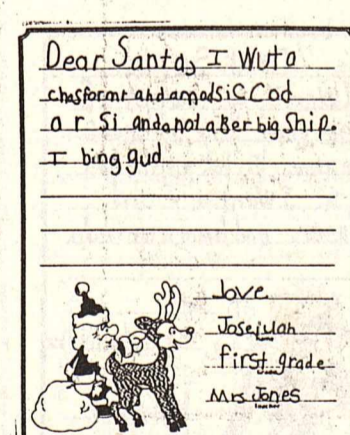 Dear Santa, I Wuto
chasformr and amodsic Cod
a r Si and a not a Ber big Ship.
I bing gud
love
Josejuah
first grade
Mrs Jones